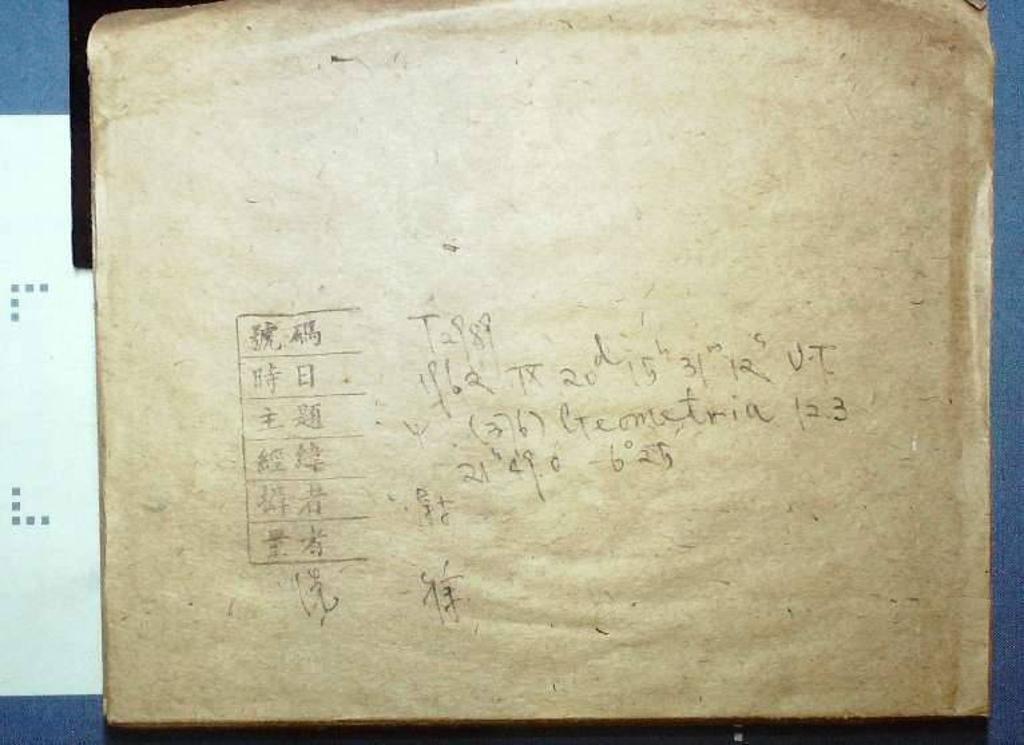 號碼 T2989
時日 1962 IX 20d 15h 31m 12s U.T.
主題 (376) Geometria 12.3
經緯 21h 49.0 -6°25
攝者
量者
洗 徐